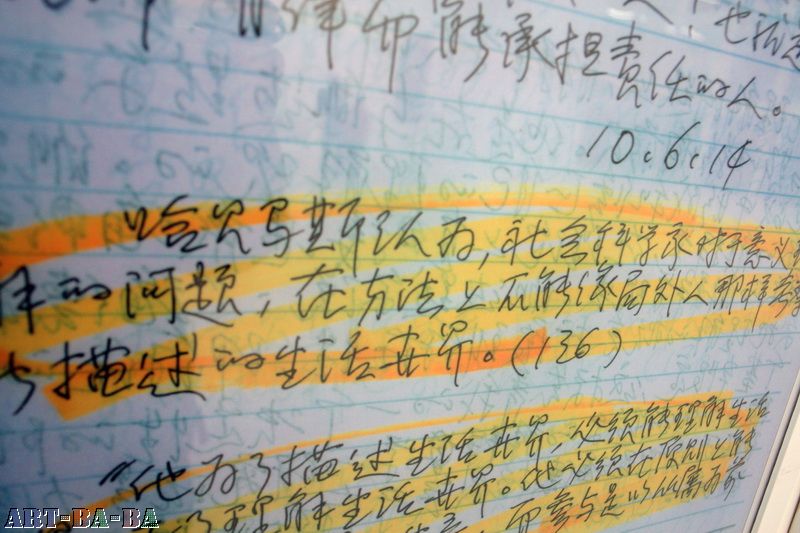 而能承担责任的人。
10.6.14
哈贝马斯认为,社会科学家对于意义
的问题,在方法上不能像局外人那样考察
描述的生活世界。(136)
“他为了描述生活世界,必须能理解生活
理解生活世界。他必须在原则上能
而参与是以从属为前
ART-BA-BA